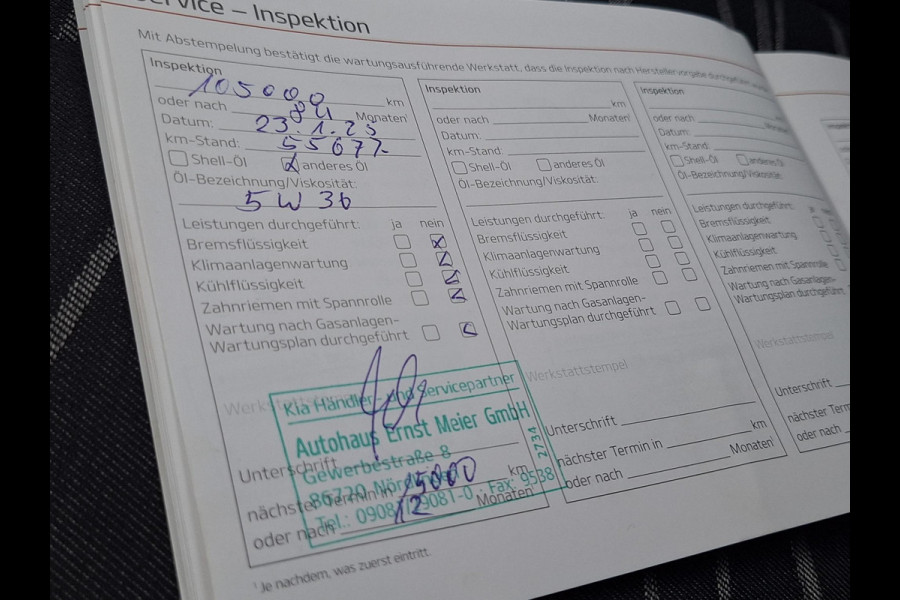 Service – Inspektion
Mit Abstempelung bestätigt die wartungsausführende Werkstatt, dass die Inspektion nach Herstellervorgabe durchgeführt
Inspektion
105000 km
oder nach 84 Monaten¹
Datum: 23.1.25
km-Stand: 55677
Shell-Öl anderes Öl
Öl-Bezeichnung/Viskosität:
5W30
Leistungen durchgeführt: ja nein
Bremsflüssigkeit
Klimaanlagenwartung
Kühlflüssigkeit
Zahnriemen mit Spannrolle
Wartung nach Gasanlagen-
Wartungsplan durchgeführt
Kia Händler- und Servicepartner
Autohaus Ernst Meier GmbH
Gewerbestraße 8
86720
Tel.: 09081/29081-0 · Fax: 9538
2734
Unterschrift
nächster Termin in 15000 km
oder nach 12 Monaten
¹ Je nachdem, was zuerst eintritt.
Inspektion
km
oder nach Monaten¹
Datum:
km-Stand:
Shell-Öl anderes Öl
Öl-Bezeichnung/Viskosität:
Leistungen durchgeführt: ja nein
Bremsflüssigkeit
Klimaanlagenwartung
Kühlflüssigkeit
Zahnriemen mit Spannrolle
Wartung nach Gasanlagen-
Wartungsplan durchgeführt
Werkstattstempel
Unterschrift
nächster Termin in km
oder nach Monaten¹
Inspektion
oder nach
Datum:
km-Stand:
Shell-Öl anderes Öl
Öl-Bezeichnung/Viskosität:
Leistungen durchgeführt:
Bremsflüssigkeit
Klimaanlagenwartung
Kühlflüssigkeit
Zahnriemen mit Spannrolle
Wartung nach Gasanlagen-
Wartungsplan durchgeführt
Werkstattstempel
Unterschrift
nächster
oder nach